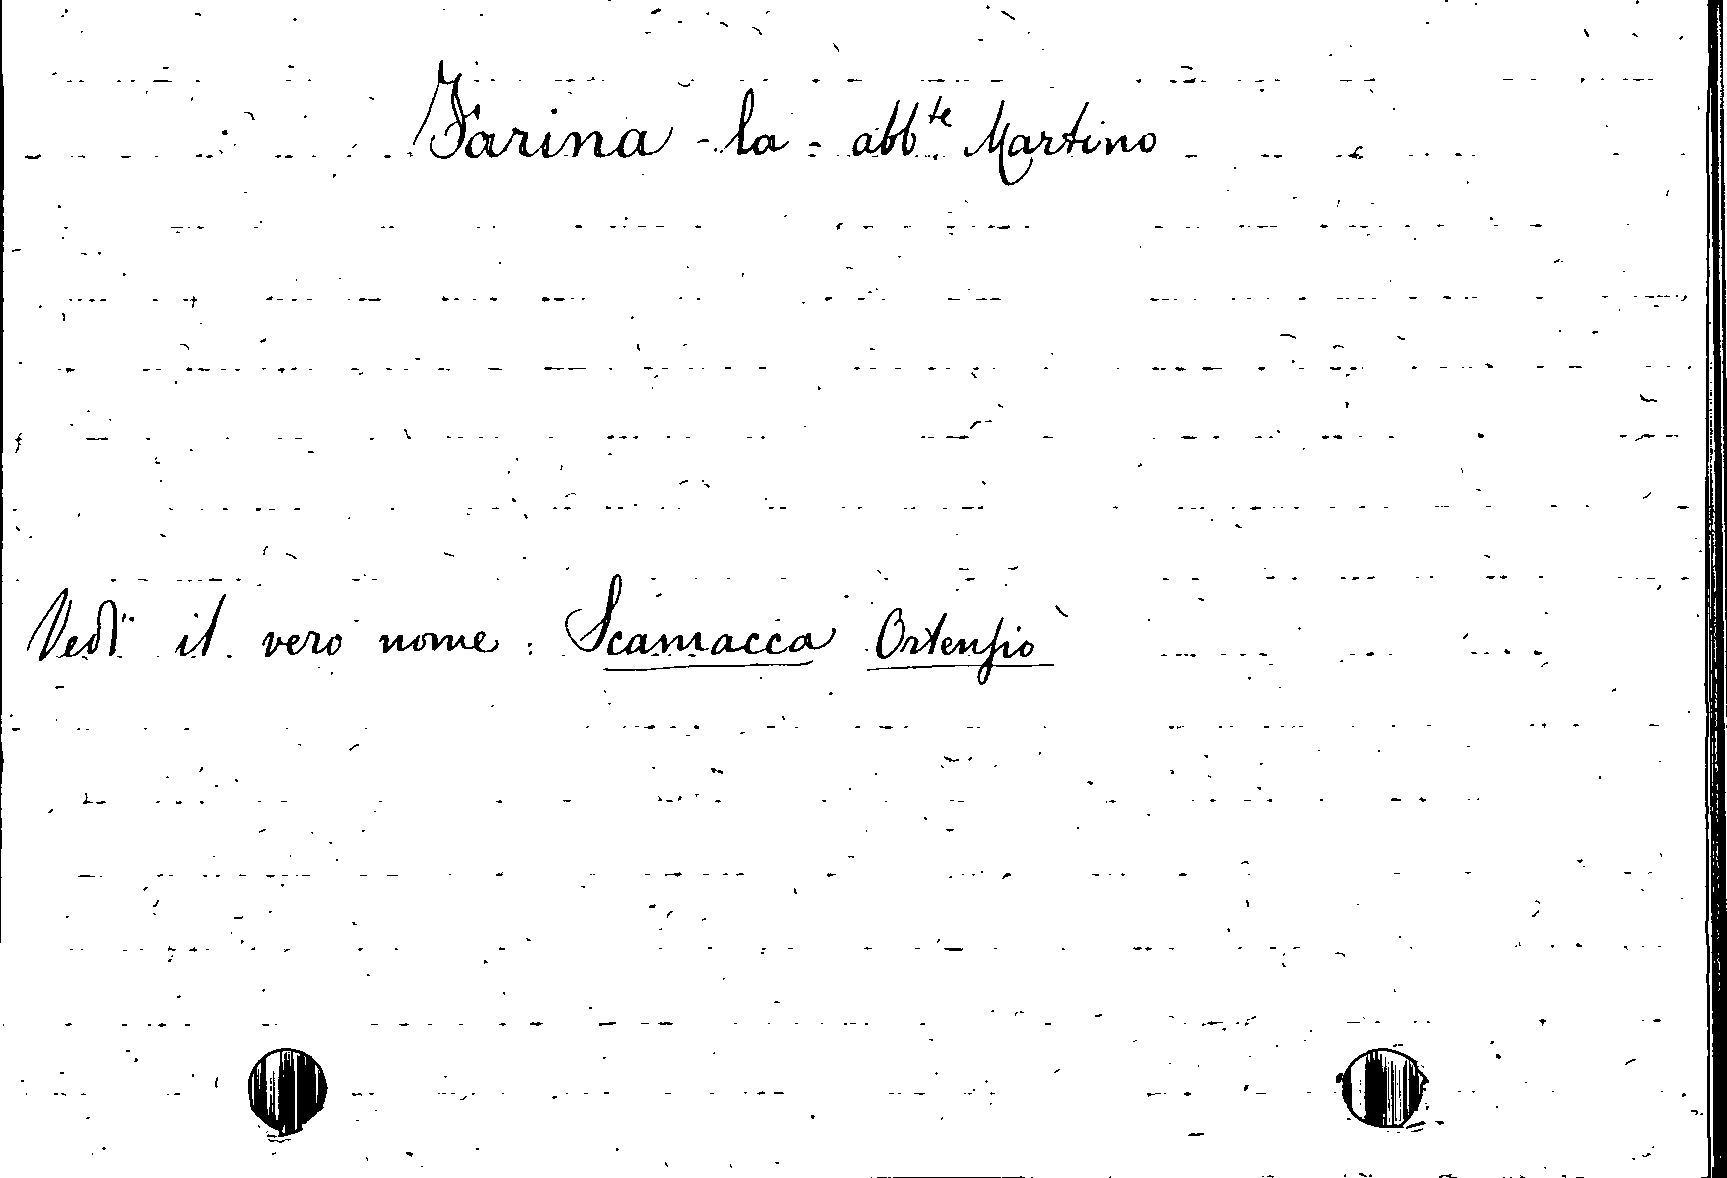 Farina - la - abb.te Martino
Vedi il vero nome : Scamacca Ortensio